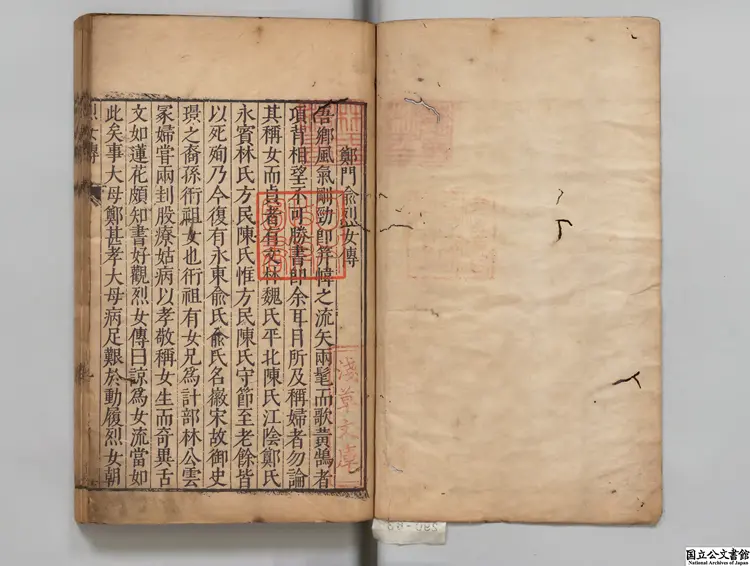 鄭門俞烈女傳
吾鄉風氣剛勁即笄幃之流矢兩髦而歌黃鵠者
項背相望不可勝書即余耳目所及稱婦者勿論
其稱女而貞者有文林魏氏平北陳氏江陰鄭氏
永賓林氏方民陳氏惟方民陳氏守節至老餘皆
以死殉乃今復有永東俞氏俞氏名嶽宋故御史
璟之裔孫衍祖女也衍祖有女兄為計部林公雲
冢婦嘗兩刲股療姑病以孝敬稱女生而奇異舌
文如蓮花頗知書好觀烈女傳曰諒為女流當如
此矣事大母鄭甚孝大母病足艱於動履烈女朝
烈女傳
淺草文庫
国立公文書館
National Archives of Japan